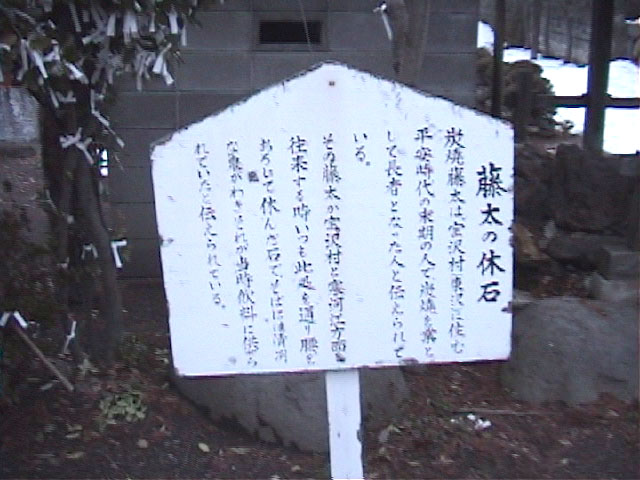 藤太の休石
炭焼藤太は宝沢村東沢に住む
平安時代の末期の人で炭焼を業と
して長者となった人と伝えられて
いる。
その藤太が宝沢村と寒河江方面を
往来する時いつも此処を通り腰を
おろして休んだ石でそばには清冽
な泉がわきそれが当時飲料に使ら
れていたと伝えられている。